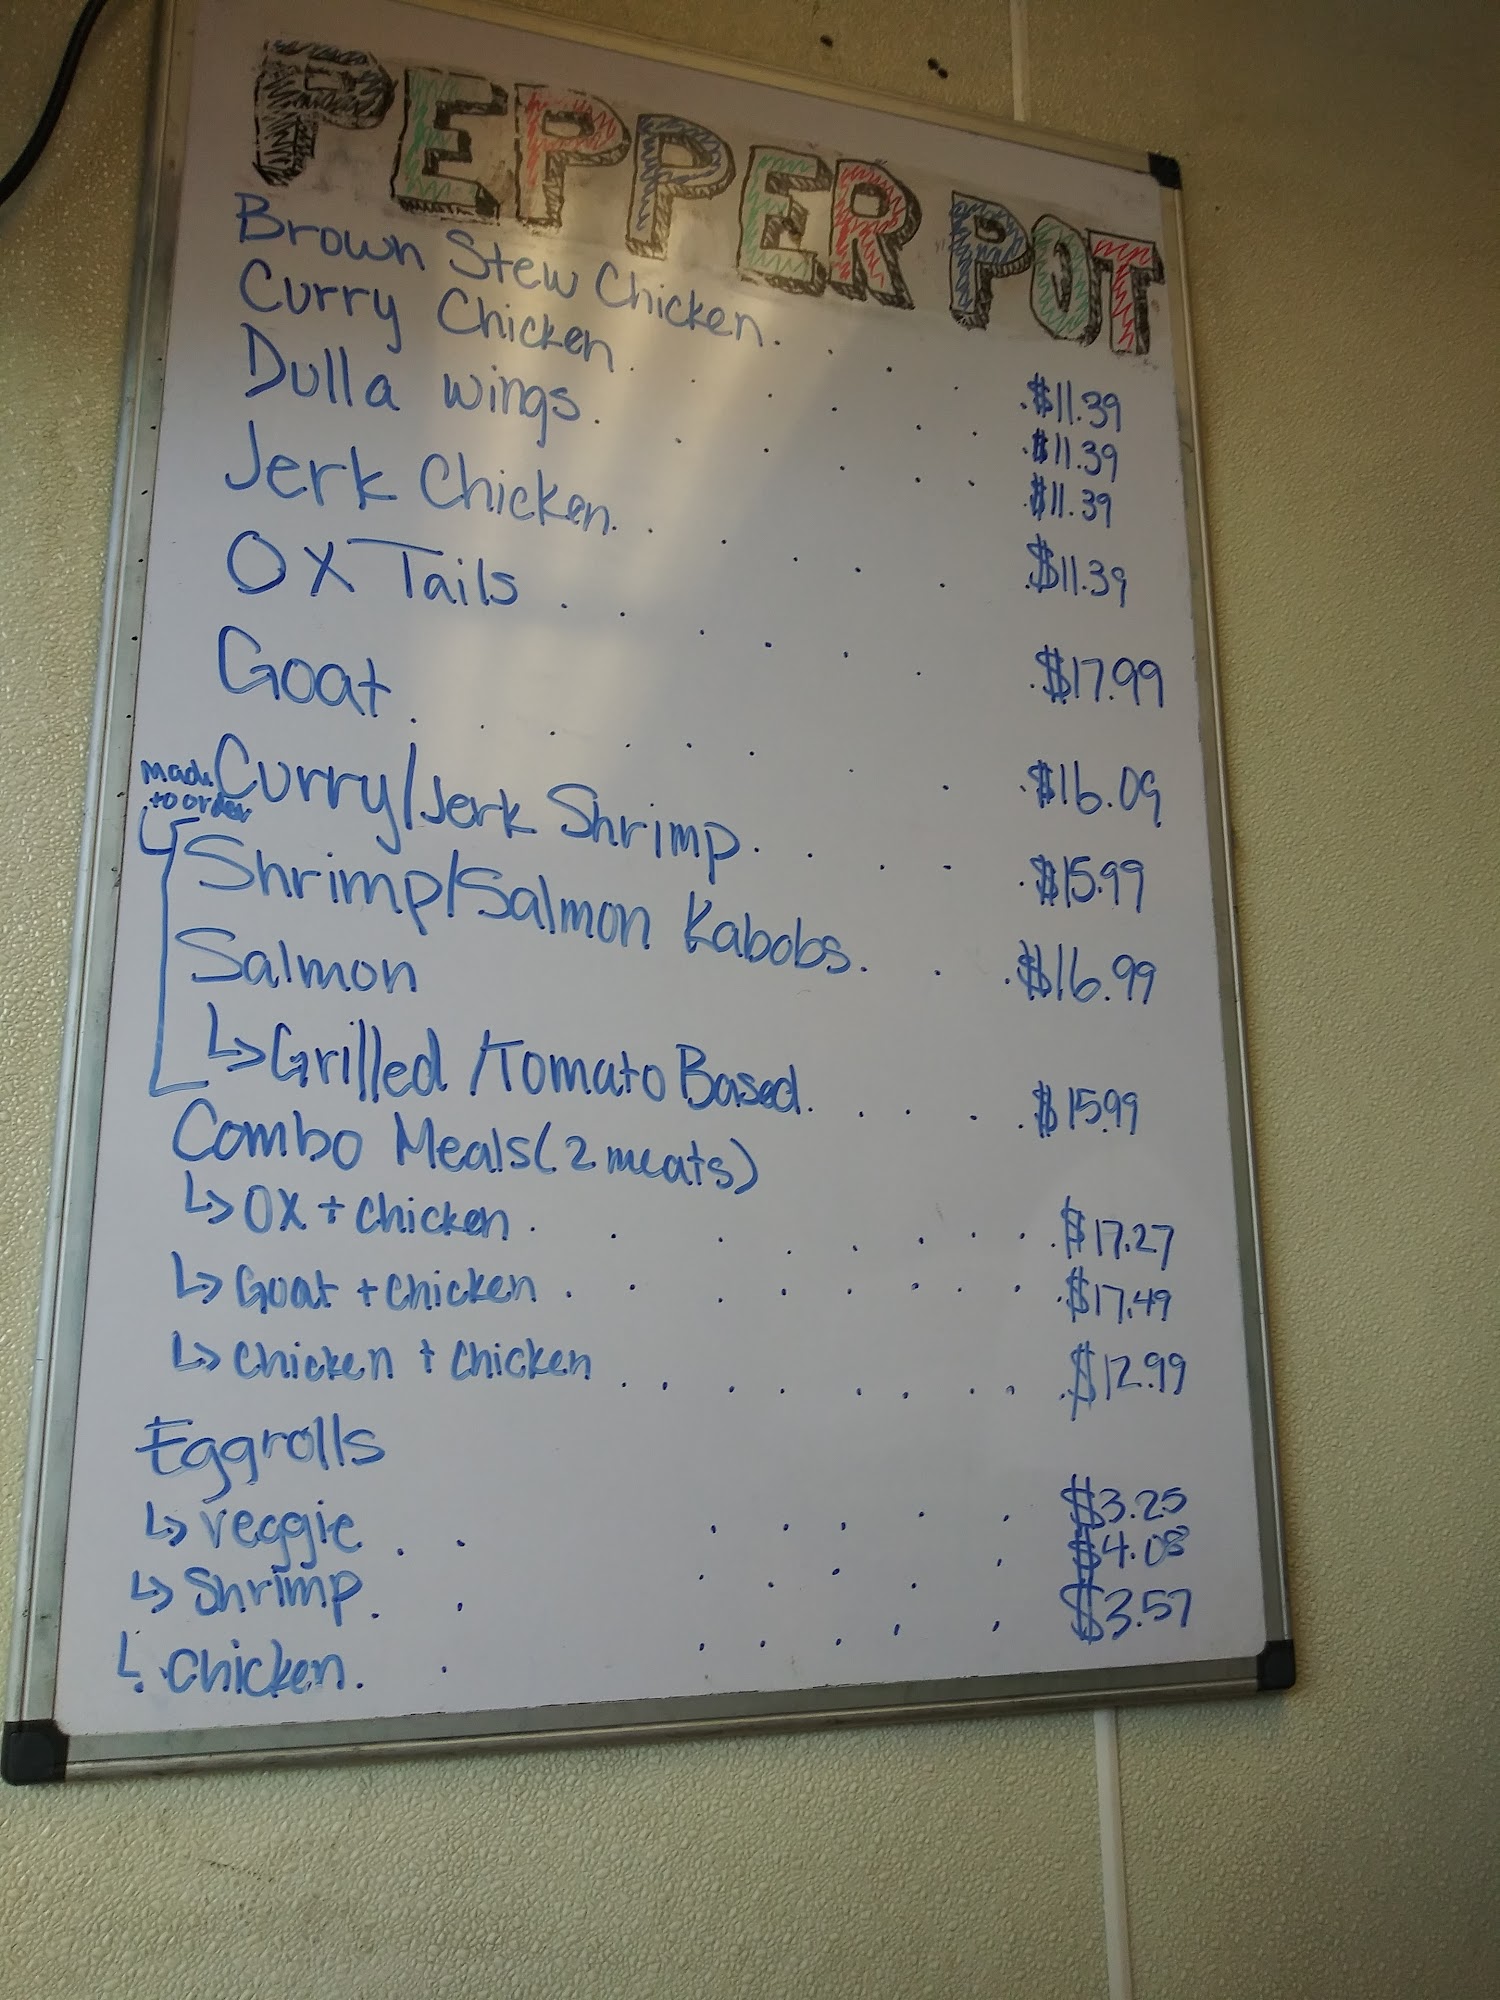 PEPPER POT
Brown Stew Chicken. . . . . $11.39
Curry Chicken . . . . . . $11.39
Dulla wings. . . . . . $11.39
Jerk Chicken. . . . . . $11.39
OX Tails . . . . . . . $17.99
Goat . . . . . . . . $16.09
made to order
Curry/Jerk Shrimp. . . . . $15.99
Shrimp/Salmon Kabobs. . . $16.99
Salmon
↳ Grilled /Tomato Based. . . . . $15.99
Combo Meals (2 meats)
↳ OX + Chicken . . . . . . . . . $17.27
↳ Goat + Chicken . . . . . . . . . $17.49
↳ Chicken + Chicken . . . . . . . . . $12.99
Eggrolls
↳ veggie . . . . . . . $3.25
↳ Shrimp. . . . . . . $4.08
↳ Chicken. . . . . . . $3.57